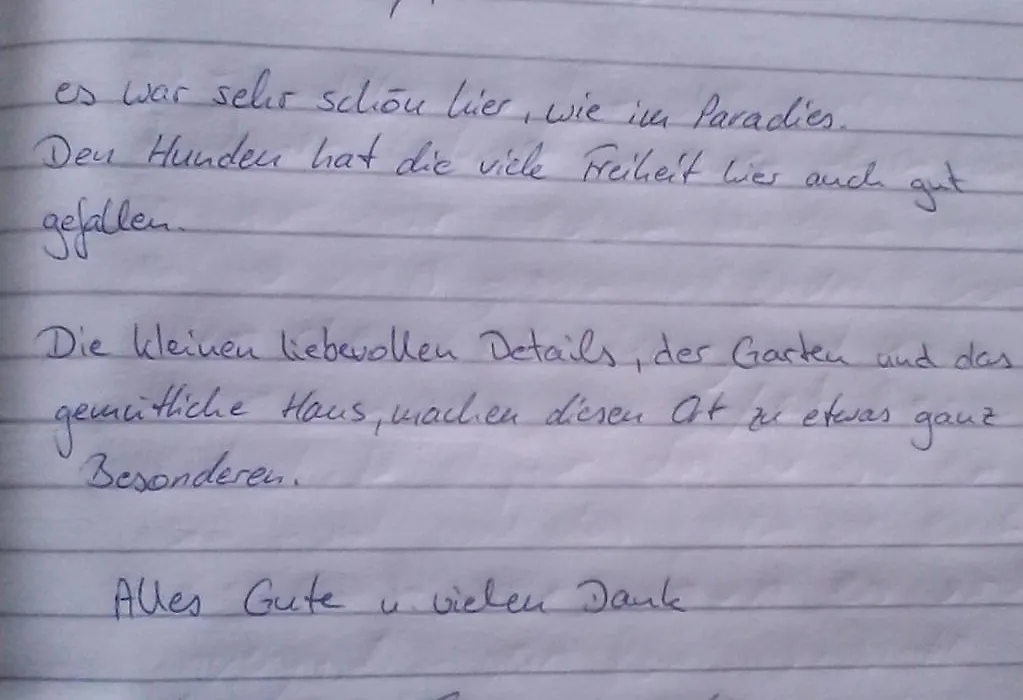 es war sehr schön hier, wie im Paradies.
Den Hunden hat die viele Freiheit hier auch gut
gefallen.
Die kleinen liebevollen Details, der Garten und das
gemütliche Haus, machen diesen Ort zu etwas ganz
Besonderen.
Alles Gute u. vielen Dank